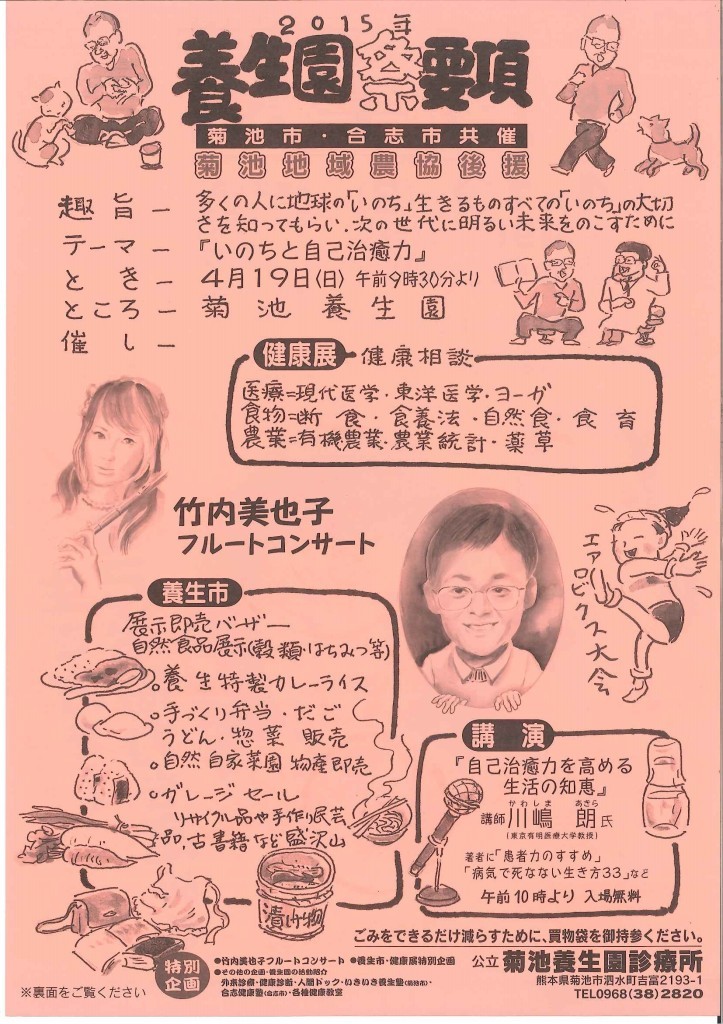 2015年
養生園祭要項
菊池市・合志市共催
菊池地域農協後援
趣旨ー 多くの人に地球の「いのち」生きるものすべての「いのち」の大切
さを知ってもらい、次の世代に明るい未来をのこすために
テーマー 『いのちと自己治癒力』
ときー 4月19日(日) 午前9時30分より
ところー 菊池養生園
催しー
健康展ー健康相談
医療=現代医学・東洋医学・ヨーガ
食物=断食・食養法・自然食・食育
農業=有機農業・農業統計・薬草
竹内美也子
フルートコンサート
エアロビクス大会
養生市
展示即売バーザー
自然食品展示(穀類・はちみつ等)
○養生特製カレーライス
○手づくり弁当・だご
うどん・惣菜 販売
○自然自家菜園物産即売
○ガレージセール
リサイクル品や手作り民芸
品,古書籍など盛沢山
漬け物
講演
『自己治癒力を高める
生活の知恵』
かわしま あきら
講師 川嶋 朗氏
(東京有明医療大学教授)
著者に「患者力のすすめ」
「病気で死なない生き方33」など
午前10時より 入場無料
ごみをできるだけ減らすために、買物袋を御持参ください。
特別企画
●竹内美也子フルートコンサート ●養生市・健康展特別企画
●その他の企画・養生園の活動紹介
外来診療・健康診断・人間ドック・いきいき養生塾(菊池市)・
合志健康塾(合志市)・各種健康教室
公立 菊池養生園診療所
熊本県菊池市泗水町吉富2193-1
TEL0968(38)2820
※裏面をご覧ください